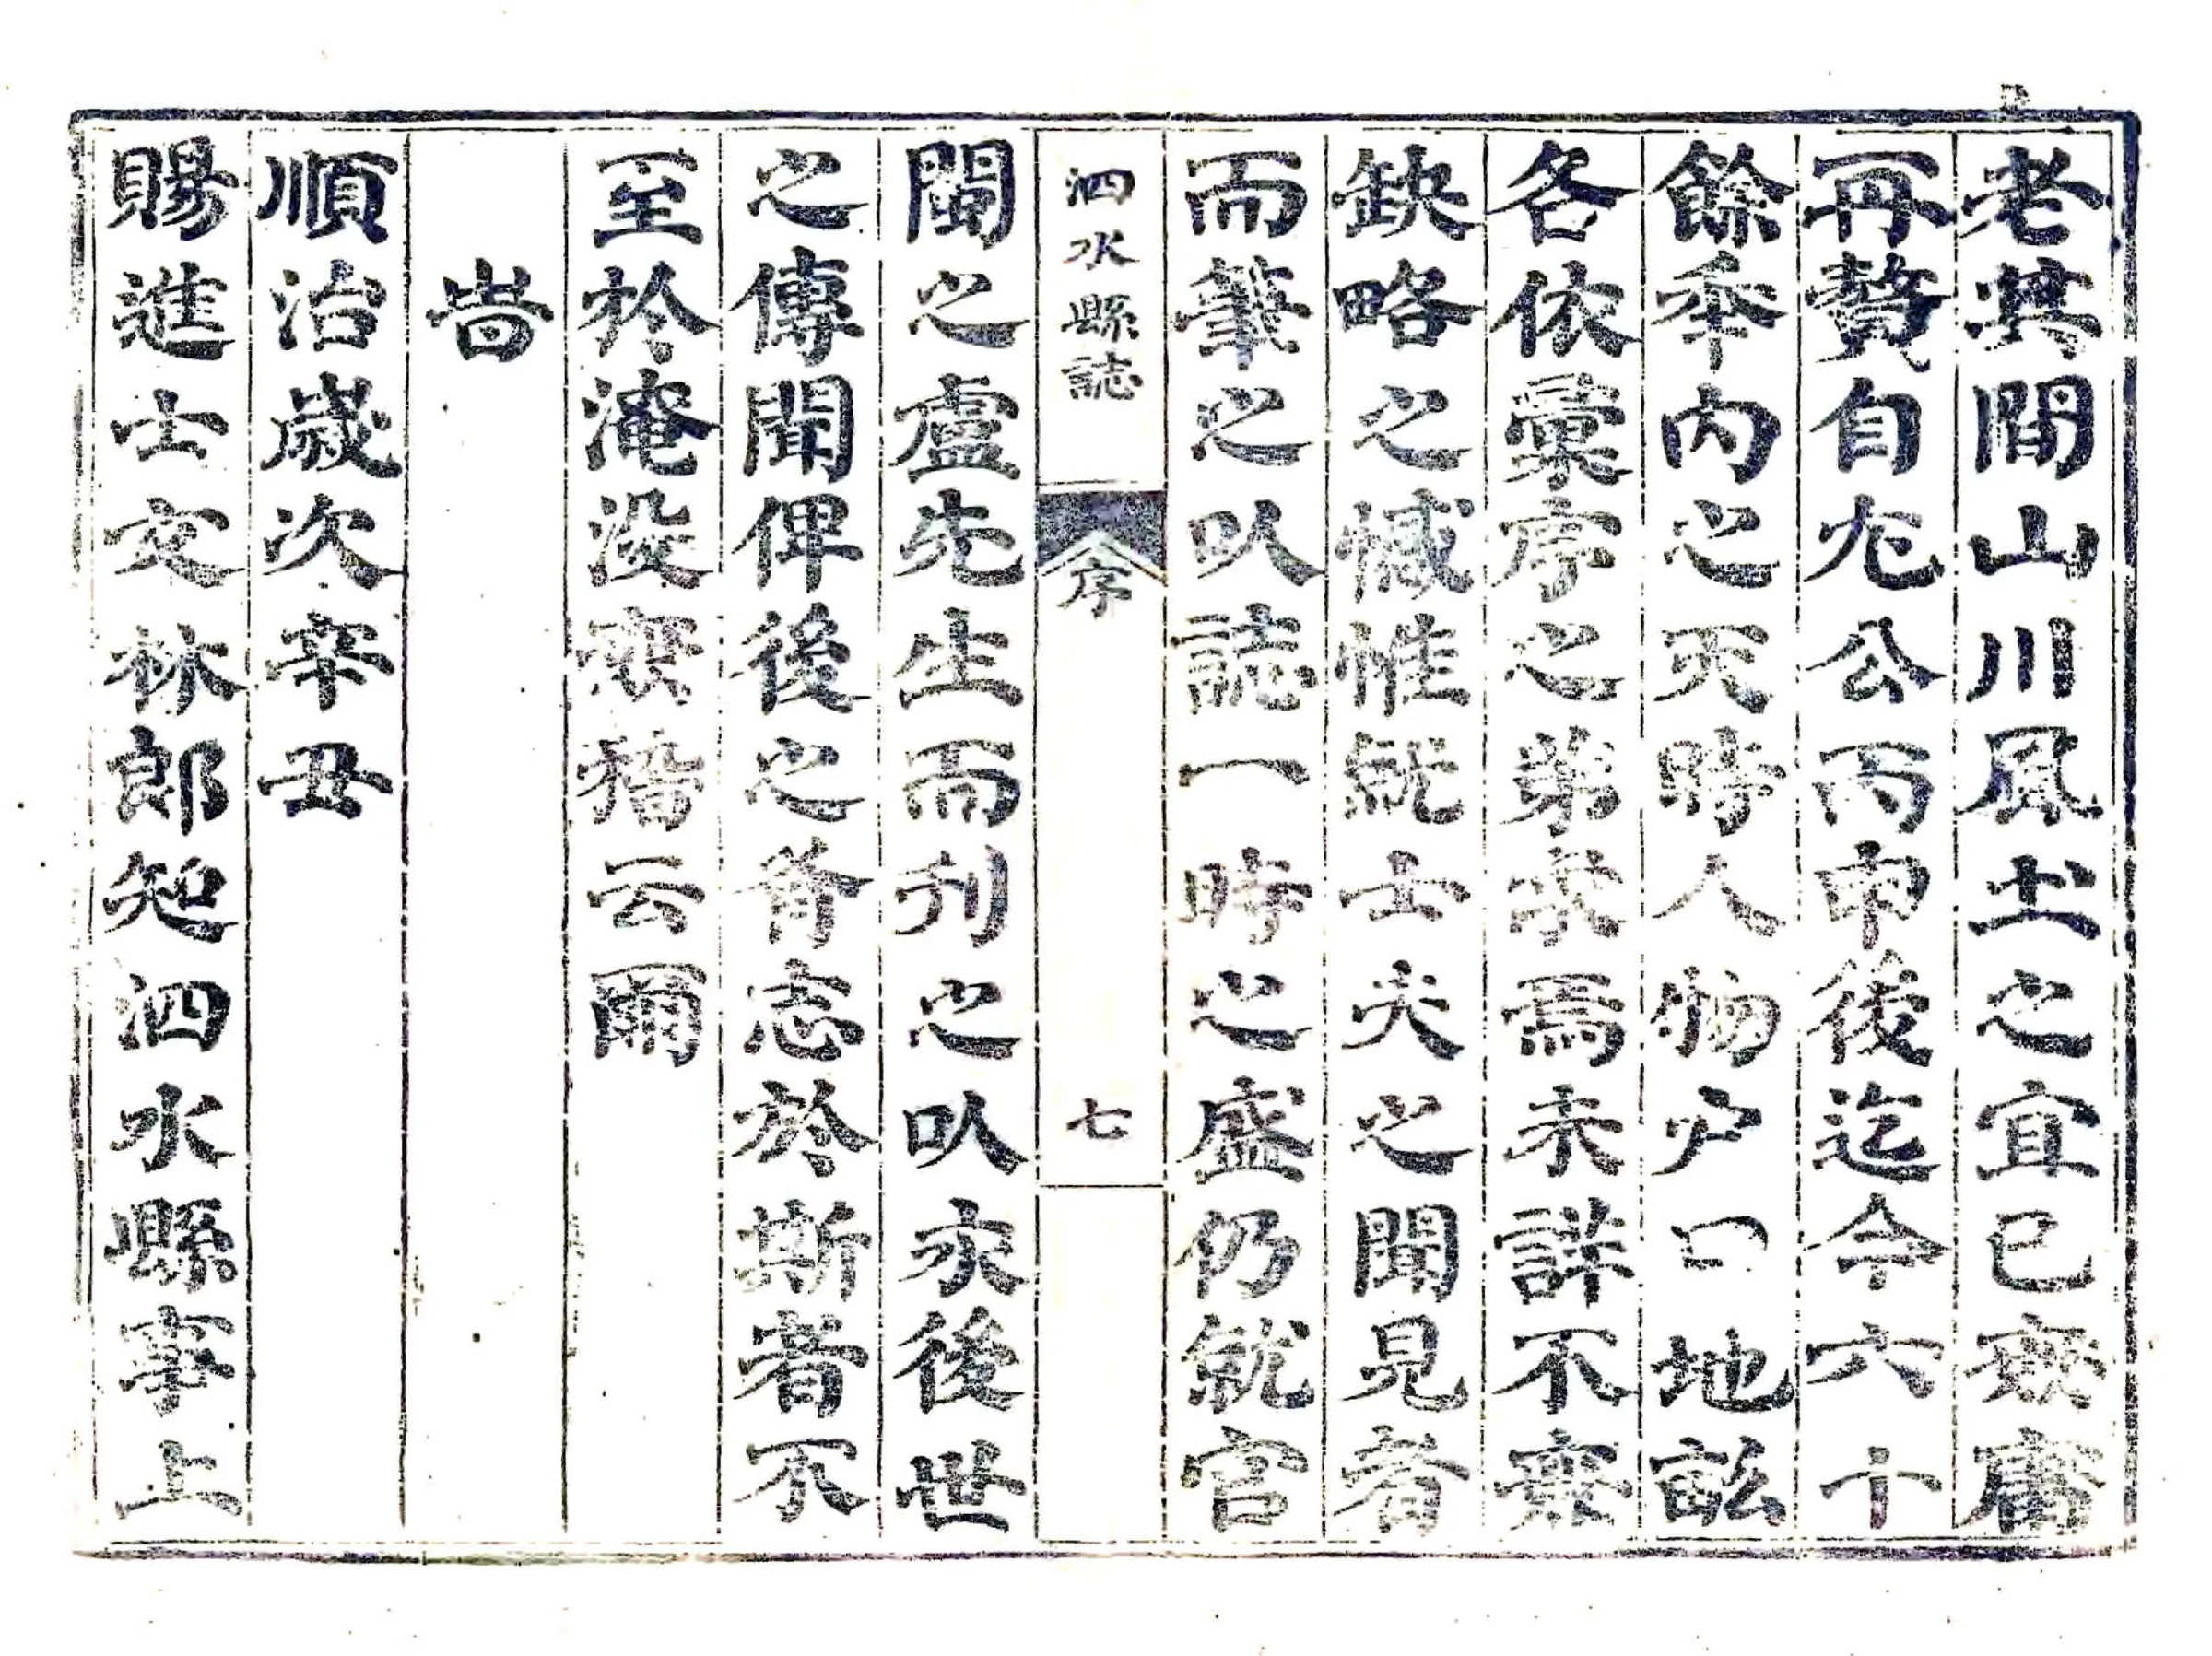 老其間山川風土之宜已無庸
再贅自尤公丙申後迄今六十
餘秊內之天時人物户口地畝
各依彙序之第焉未詳不無
缺略之憾惟就士夫之聞見者
而筆之以誌一時之盛仍就官
泗水縣誌 序 七
閩之盧先生而刊之以永後世
之傳聞俾後之有志於斯者不
至於淹沒無稽云爾
旹
順治歲次辛丑
賜進士文林郎知泗水縣事上